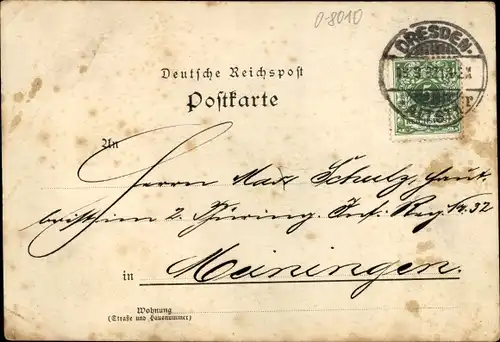 0-8010
DRESDEN-
Deutsche Reichspost
Postkarte
An
Herrn Max Schulz, Haut-
boist im 2. Thüring. Inf. Reg. No. 32
in Meiningen.
Wohnung
(Straße und Hausnummer)